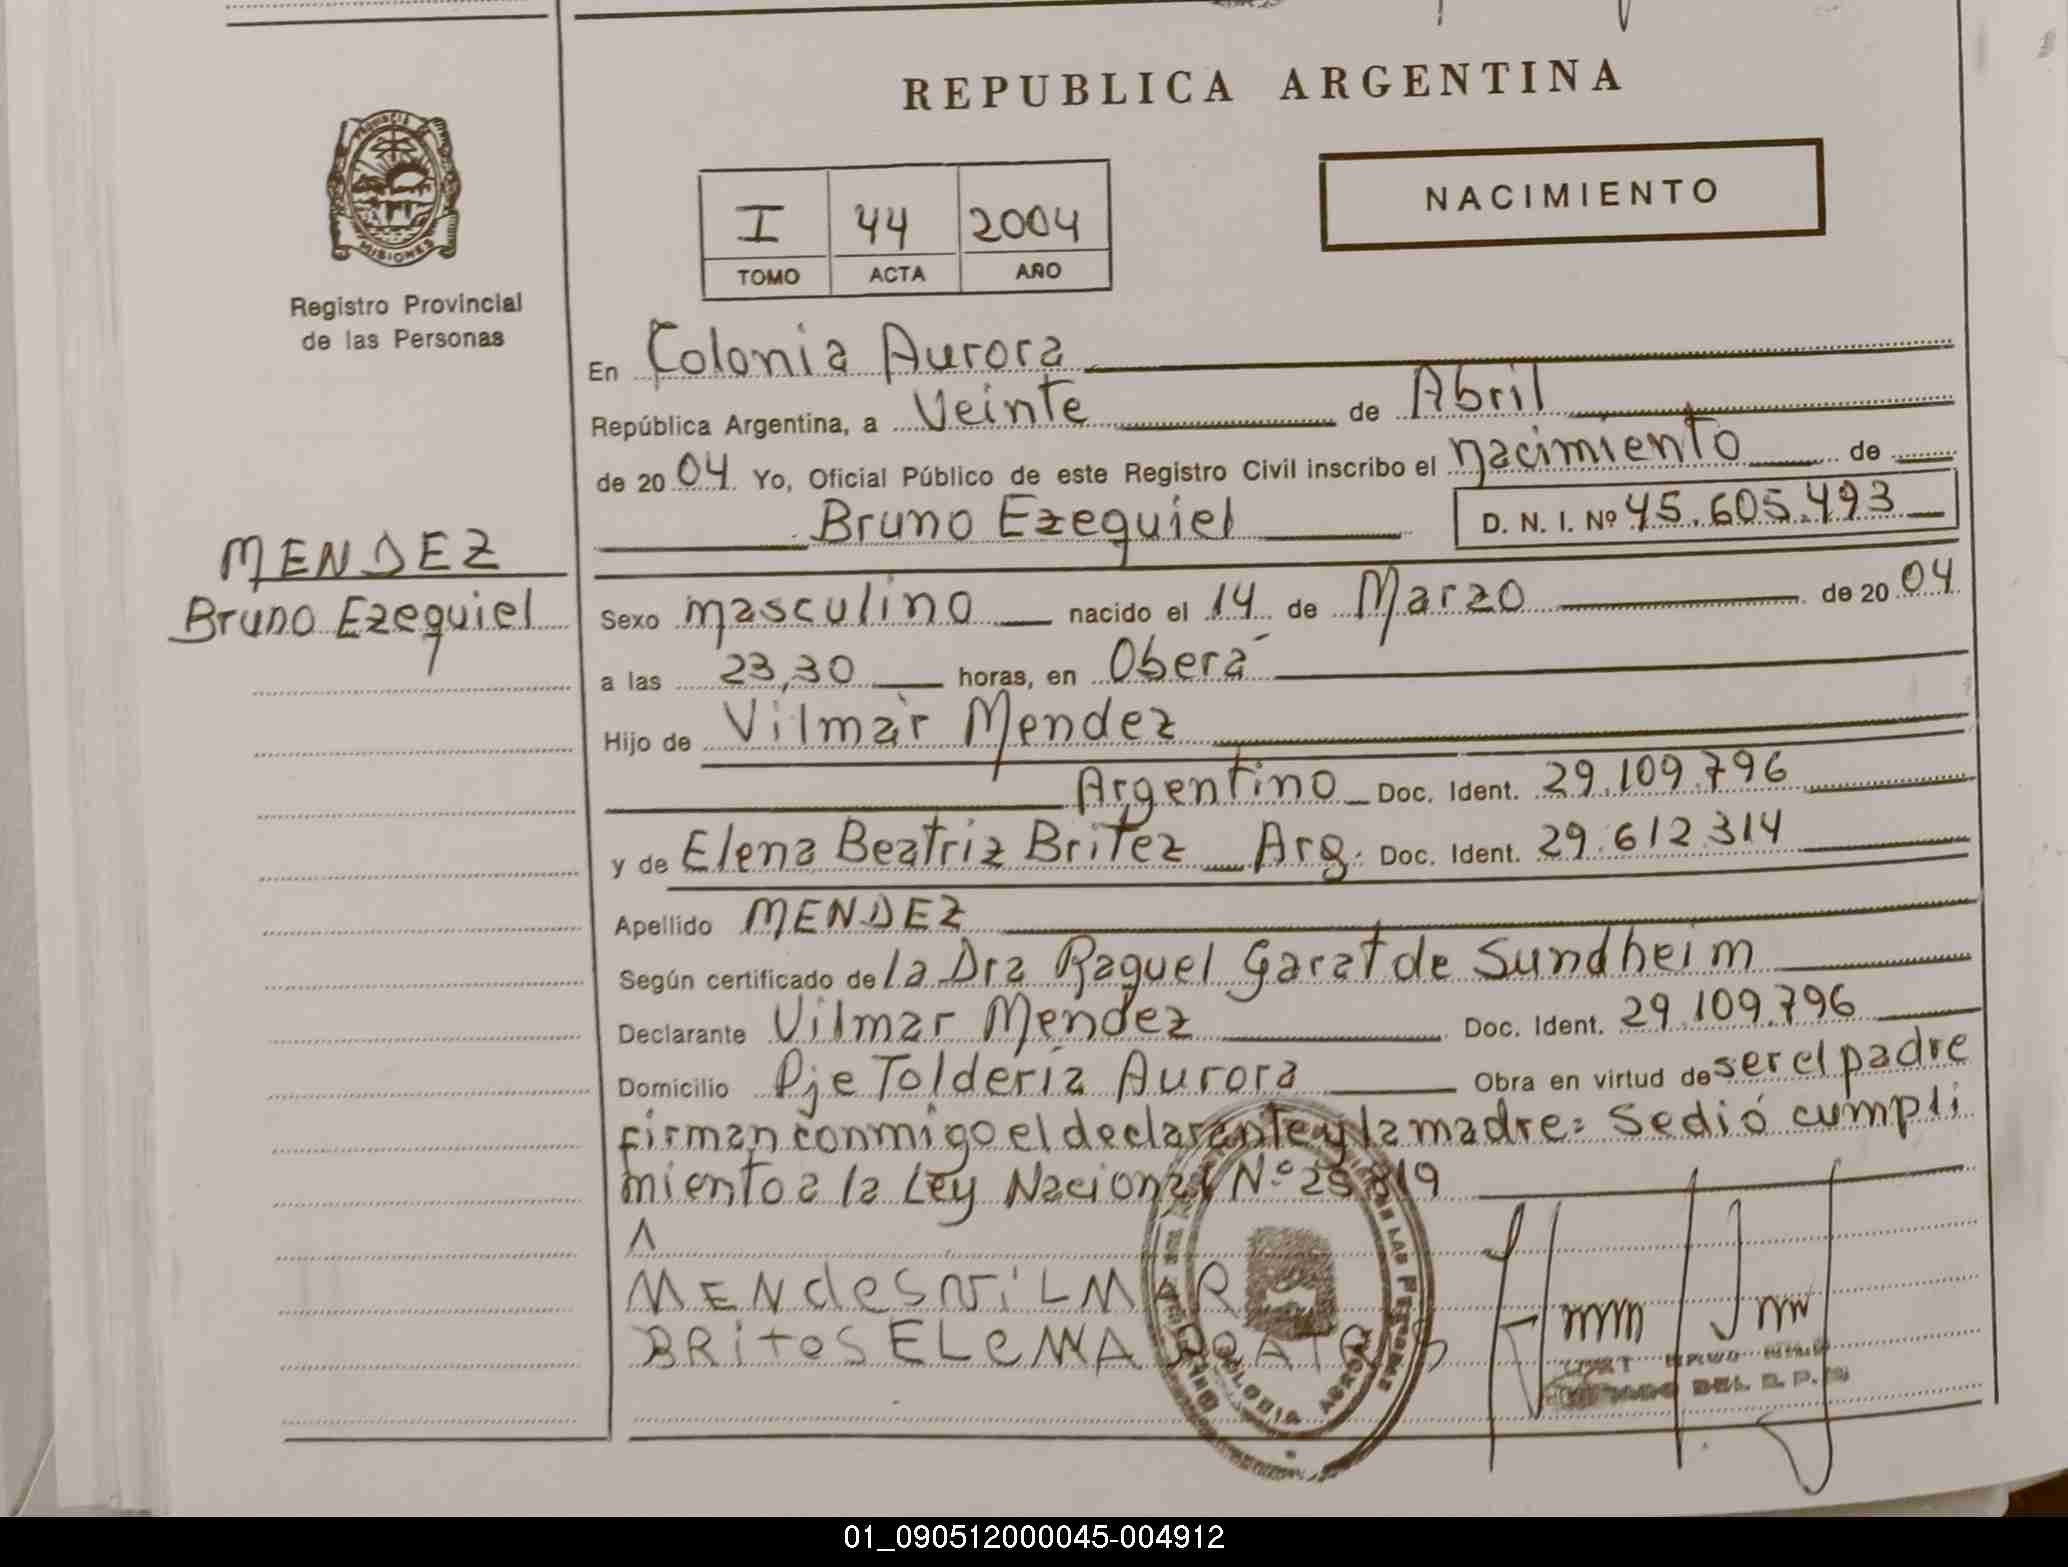 REPUBLICA ARGENTINA
PROVINCIA DE
MISIONES
Registro Provincial
de las Personas
NACIMIENTO
I 44 2004
TOMO ACTA AÑO
En Colonia Aurora
República Argentina, a Veinte de Abril
de 2004. Yo, Oficial Público de este Registro Civil inscribo el nacimiento de
Bruno Ezequiel D. N. I. Nº 45.605.493
MENDEZ
Bruno Ezequiel
Sexo masculino nacido el 14 de Marzo de 2004
a las 23,30 horas, en Oberá
Hijo de Vilmar Mendez
Argentino Doc. Ident. 29.109.796
y de Elena Beatriz Britez Arg. Doc. Ident. 29.612.314
Apellido MENDEZ
Según certificado de la Dra Raquel Garat de Sundheim
Declarante Vilmar Mendez Doc. Ident. 29.109.796
Domicilio Pje Tolderia Aurora Obra en virtud de ser el padre
firman conmigo el declarante y la madre: Se dió cumpli
miento a la Ley Nacional Nº 25.819
MENdes ViLMAR
BRitos ELeNA
COLONIA AURORA
01_090512000045-004912